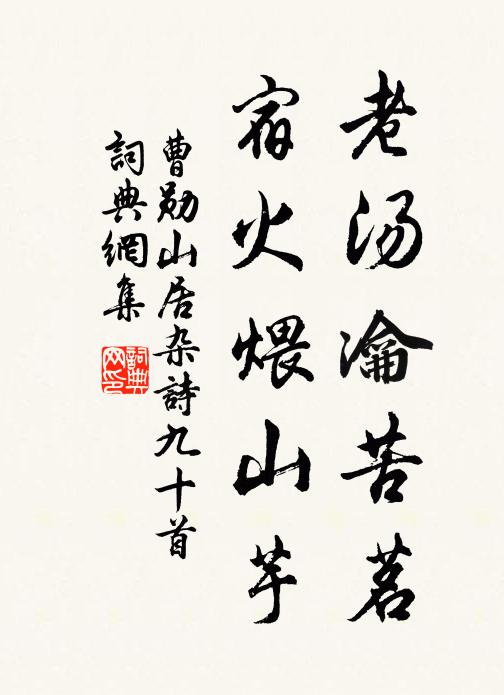 老汤瀹苦茗
宿火煨山芋
曹勋山居杂詩九十首
詞典網集
詞典网印